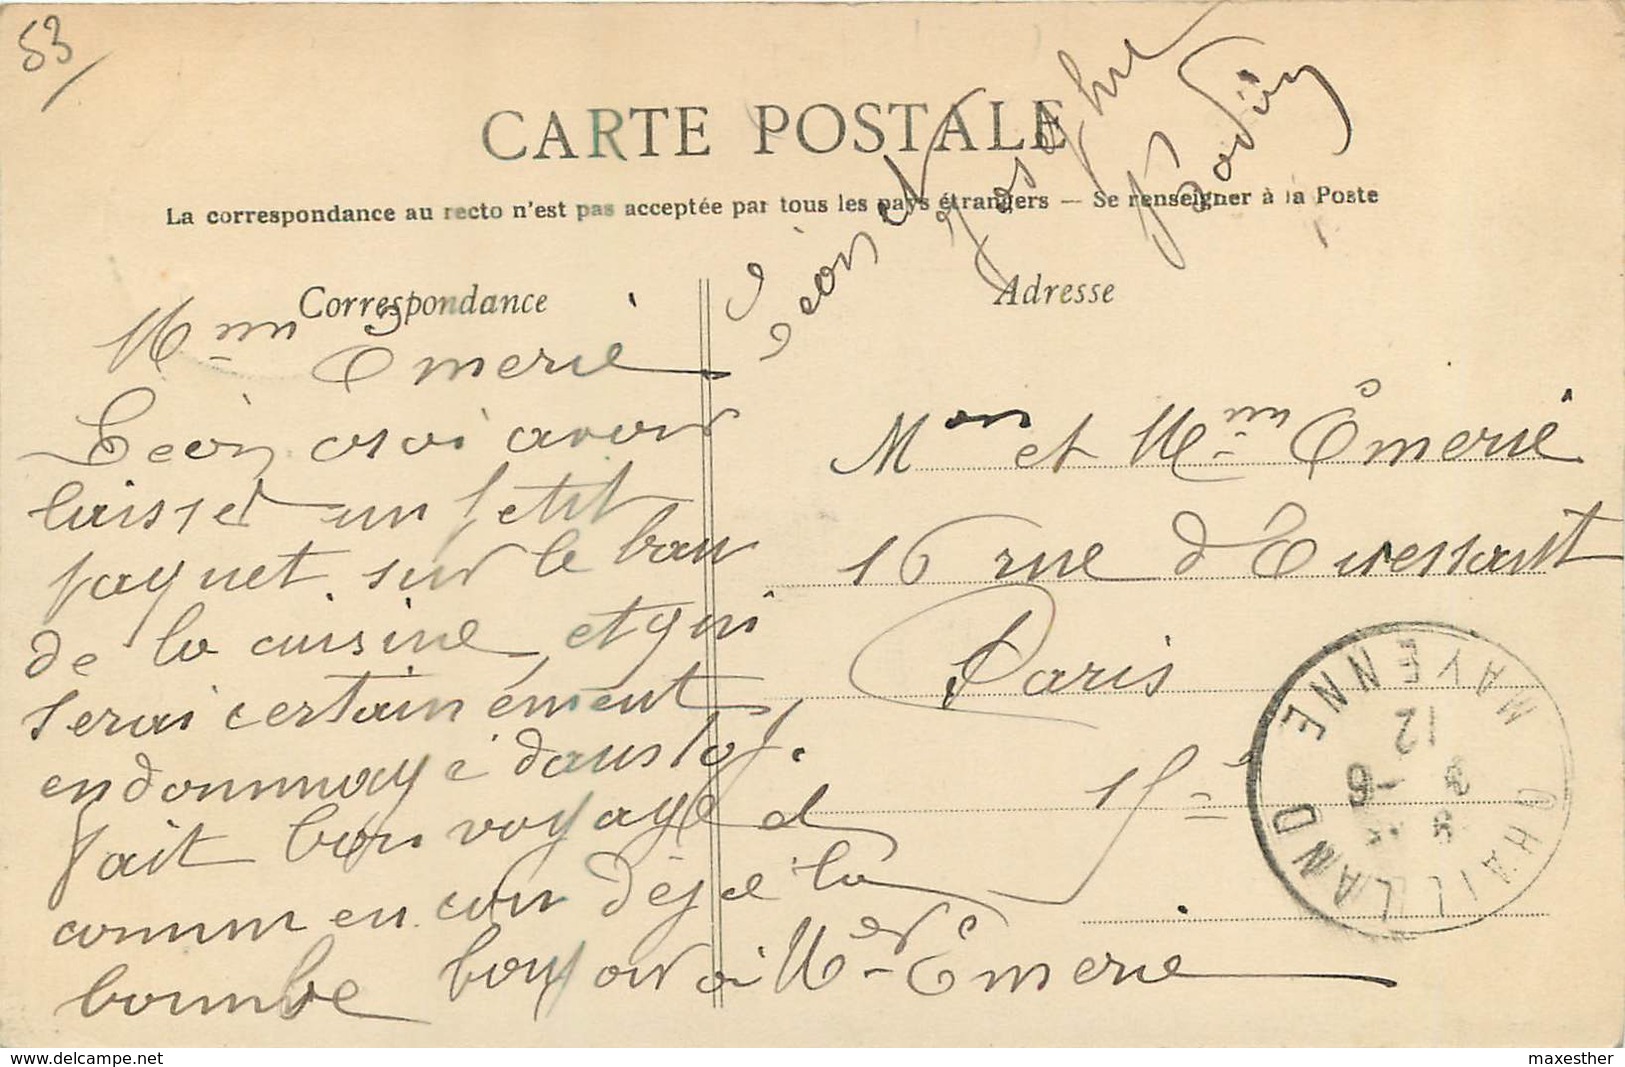 53
CARTE POSTALE
La correspondance au recto n'est pas acceptée par tous les pays étrangers — Se renseigner à la Poste
Correspondance
Adresse
Léon et
Josephe
Mme
Emerie
Léon croi avoir
laisser un petit
paquet sur le banc
de la cuisine et qui
serai certainement
endommagé dans
fait bon voyage et
comme en con déjé la
bombe bonjour à Mer Emerie
Mon et Mme Emerie
16 rue d'Ouessant
Paris
15e
CHAILLAND
MAYENNE
12